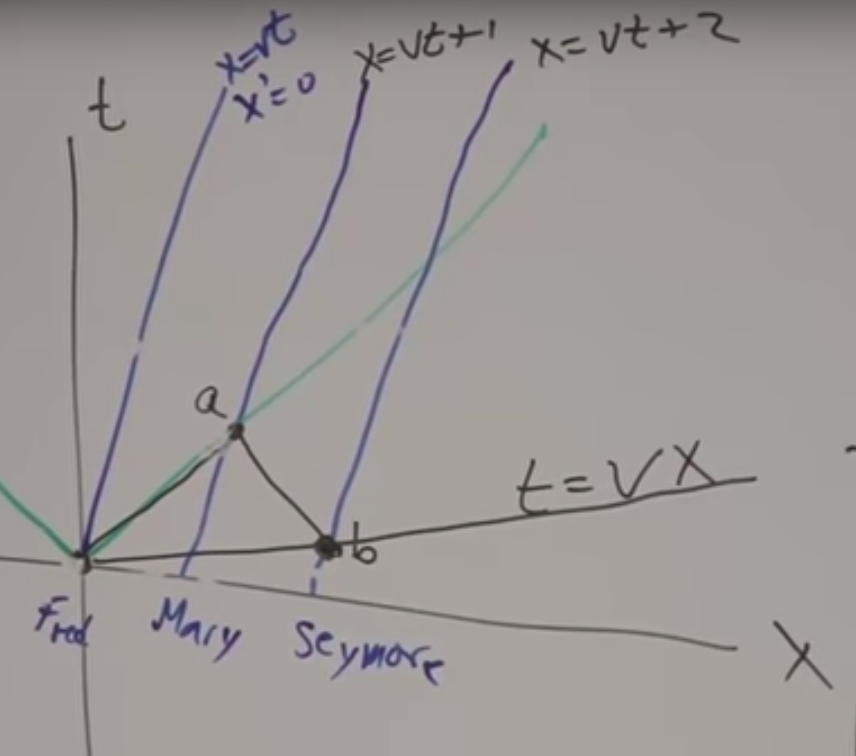 x=vt
x'=0
x=vt+1
x=vt+2
t
a
t=vx
b
Fred
Mary
Seymore
X